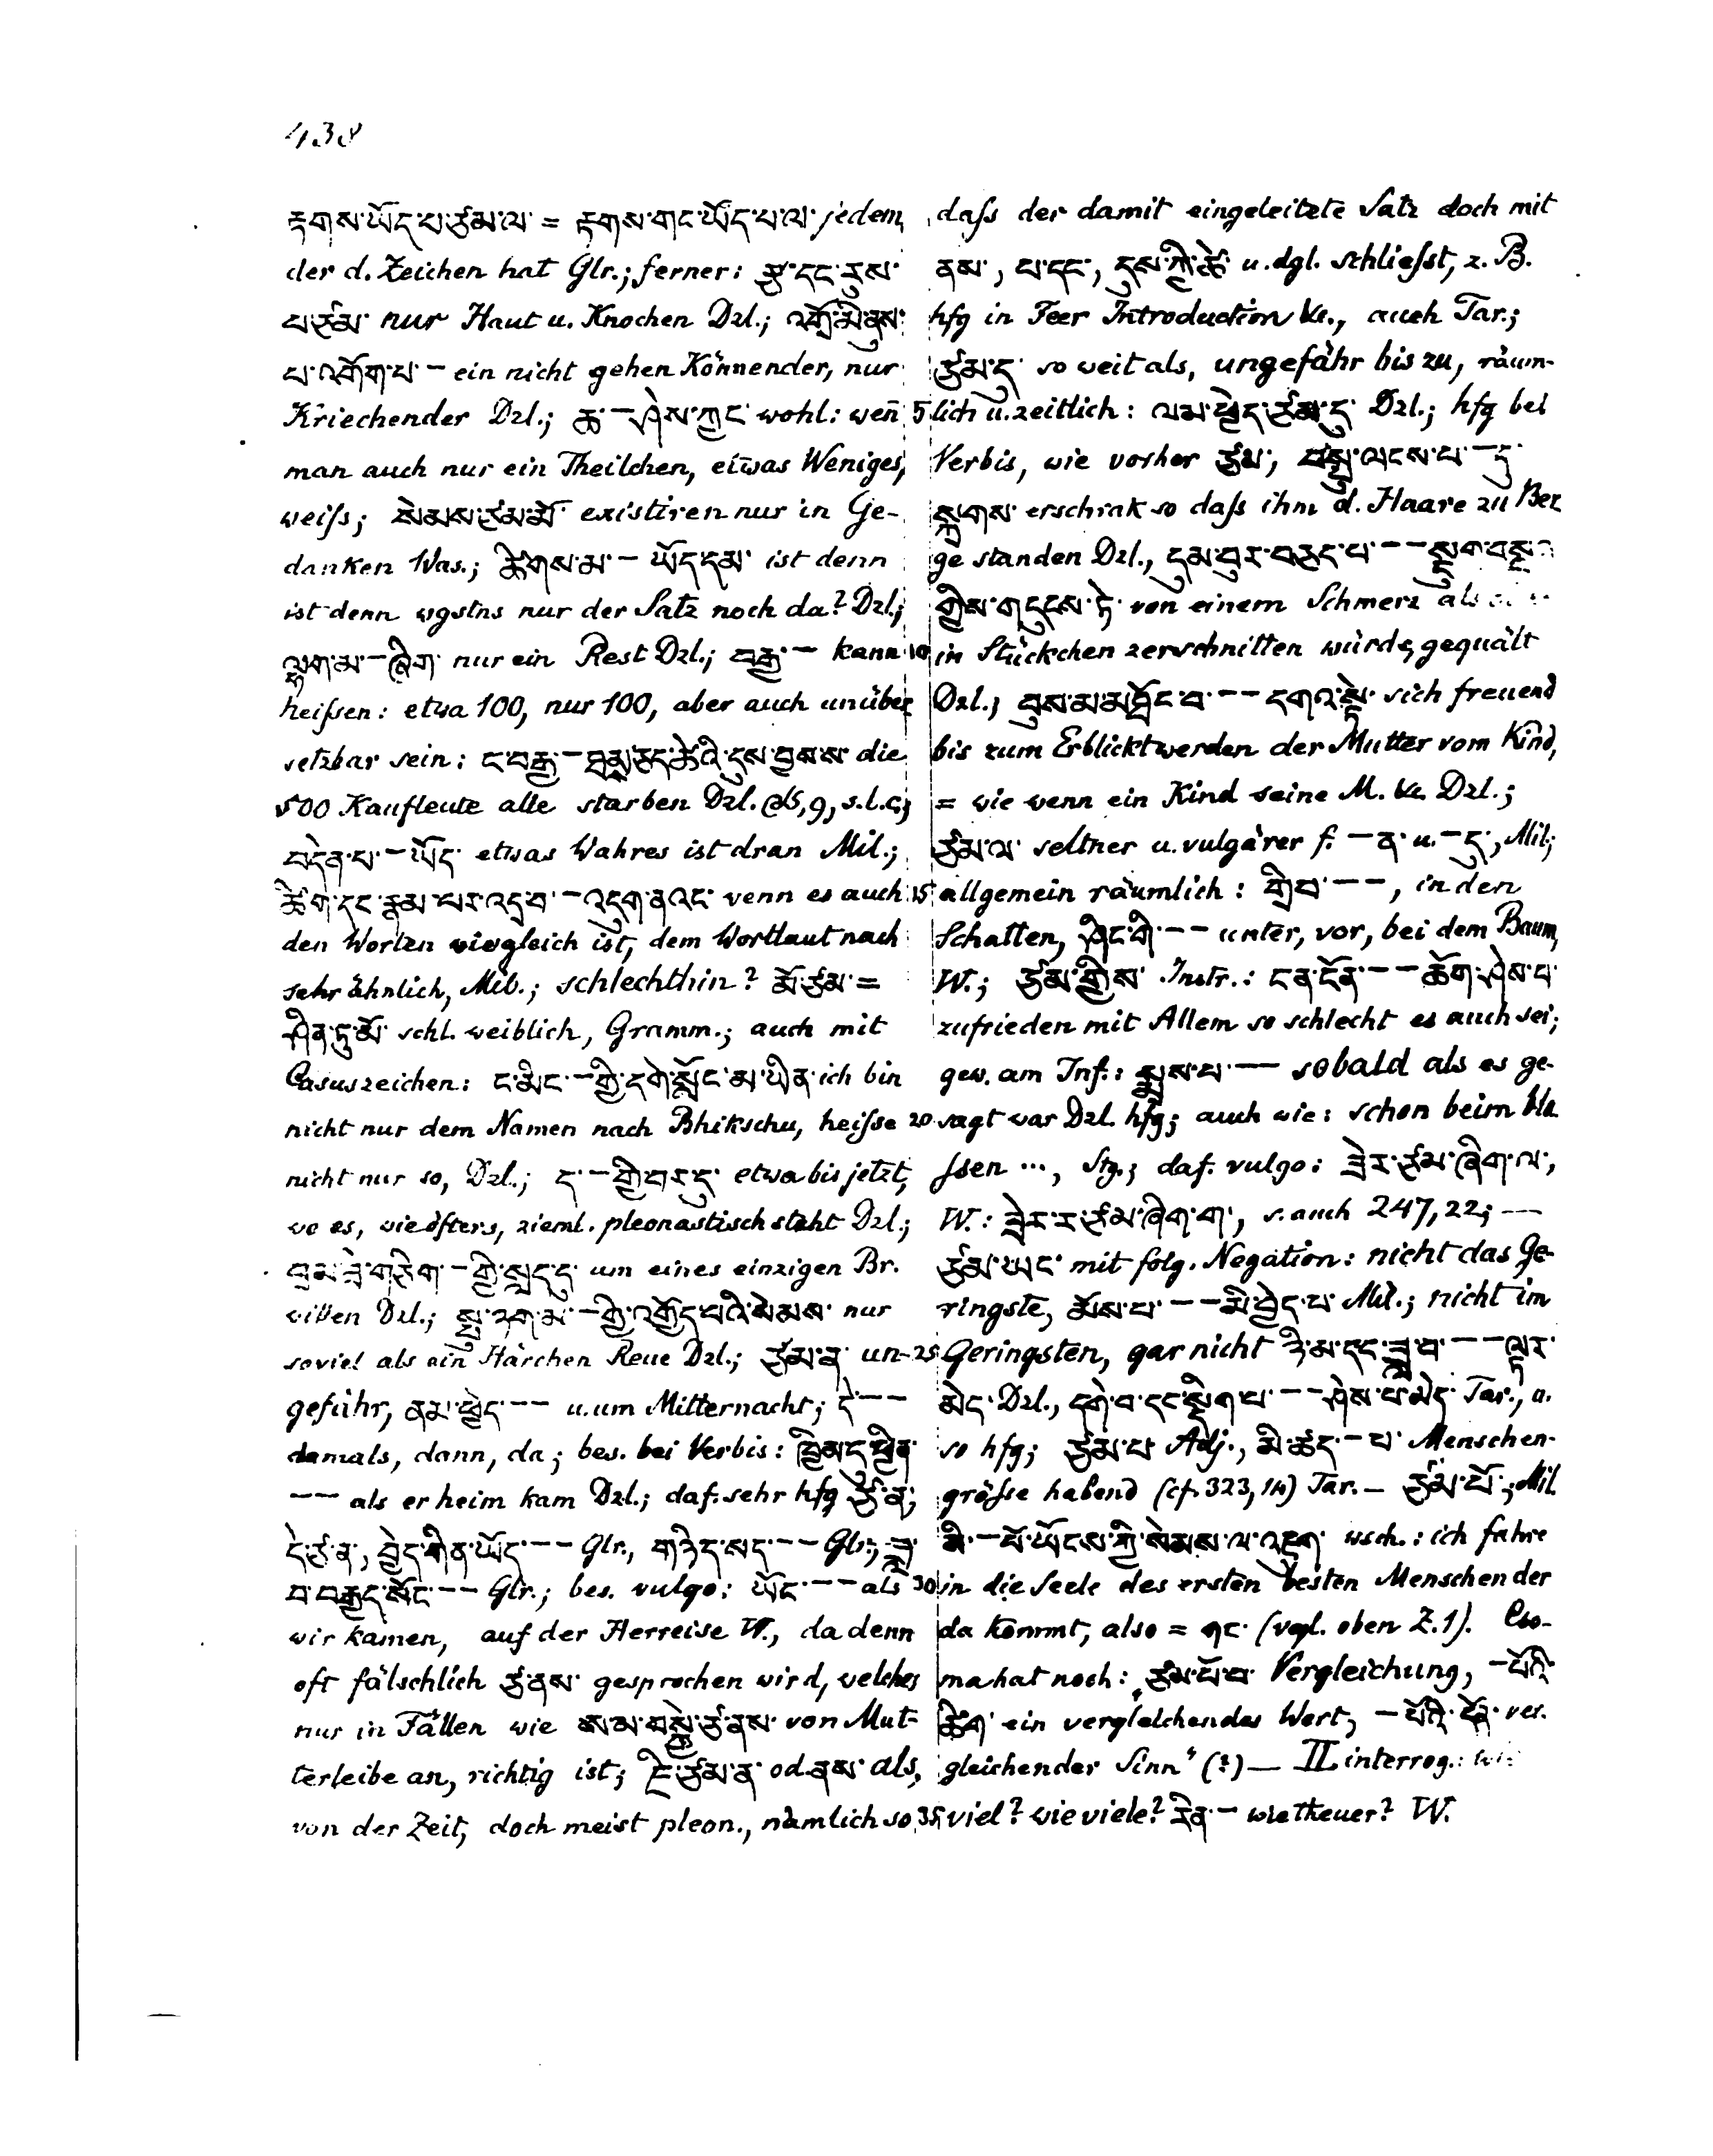 438
རྟགས་ཡོད་པ་ཙམ་ལ་ = རྟགས་གང་ཡོད་པ་ལ་ jedem,
der d. Zeichen hat Glr.; ferner: ལྤགས་དང་རུས་
པ་ཙམ་ nur Haut u. Knochen Dzl.; འགྲོ་མི་ནུས་
པ་འགོག་པ་ – ein nicht gehen Könnender, nur
Kriechender Dzl.; ཆ་ – ཤེས་ཀྱང་ wohl: weñ
man auch nur ein Theilchen, etwas Weniges,
weiſs; སེམས་ཙམ་མོ་ existiren nur in Ge-
danken Was.; ཚིགས་མ་ – ཡོད་དམ་ ist denn
ist denn wgstns nur der Satz noch da? Dzl.;
ལྷག་མ་ – ཞིག་ nur ein Rest Dzl.; བརྒྱ་ – kann
heiſsen: etwa 100, nur 100, aber auch unüber
setzbar sein: ང་བརྒྱ་ – ཐམས་ཅད་ཚེའི་དུས་བྱས་ས་ die
500 Kaufleute alle starben Dzl.
བདེན་པ་ – ཡོད་ etwas Wahres ist dran Mil.;
ཚིག་དང་རྣམ་པར་འདྲ་བ་ – འདུག་ནའང་ wenn es auch
den Worten wiegleich ist, dem Wortlaut nach
sehr ähnlich, Mil.; schlechthin? མོ་ཙམ་ =
ཤིན་ཏུ་མོ་ schl. weiblich, Gramm.; auch mit
Casuszeichen: ང་མིང་ – གྱི་དགེ་སློང་མ་ཡིན་ ich bin
nicht nur dem Namen nach Bhikschu, heiſse
nicht nur so, Dzl.; ད་ – གྱི་བར་དུ་ etwa bis jetzt,
wo es, wie öfters, zieml. pleonastisch steht Dzl.;
བྲམ་ཟེ་གཅིག་ – གྱི་སླད་དུ་ um eines einzigen Br.
willen Dzl.; སྤུ་ཉག་མ་ – གྱི་འགྱོད་པའི་སེམས་ nur
soviel als ein Härchen Reue Dzl.; ཙམ་ན་ un-
gefähr, ནམ་ཕྱེད་ – – u. um Mitternacht; དེ་ – –
damals, dann, da; bes. bei Verbis: ཁྱིམ་དུ་ཕྱིན་
– – als er heim kam Dzl.; daf. sehr hfg ཙ་ན་;
དེ་ཙ་ན་, བྱེད་གིན་ཡོད་ – – Glr., གཉིད་སད་ – – Glr.; ཟླ་
བ་བརྒྱད་སོང་ – – Glr.; bes. vulgo: ཡོང་ – – als
wir kamen, auf der Herreise W., da denn
oft fälschlich ཙ་ནས་ gesprochen wird, welches
nur in Fällen wie མ་མ་བསྐྱེ་ཙ་ནས་ von Mut-
terleibe an, richtig ist; ཇི་ཙམ་ན་ od. ནས་ als,
von der Zeit, doch meist pleon., nämlich so,
daſs der damit eingeleitete Satz doch mit
ནས་, པ་དང་, དུས་ཀྱི་ཚེ་ u. dgl. schlieſst, z. B.
hfg in Feer Introduction &c., auch Tar.;
ཙམ་དུ་ so weit als, ungefähr bis zu, räum-
5 lich u. zeitlich: ལམ་ཕྱེད་ཙམ་དུ་ Dzl.; hfg bei
Verbis, wie vorher ཙམ་, བསྤུ་ལངས་པ་ – དུ་
སྐྲགས་ erschrak so daſs ihm d. Haare zu Ber
ge standen Dzl., དུམ་བུར་བཅད་པ་ – – སྡུག་བསྔལ་
གྱིས་གདུངས་ཏེ་ von einem Schmerz als
10 in Stückchen zerschnitten würde, gequält
Dzl.; བུས་མ་མཐོང་བ་ – – དགའ་སྟེ་ sich freuend
bis zum Erblicktwerden der Mutter vom Kind,
= wie wenn ein Kind seine M. &c. Dzl.;
ཙམ་ལ་ seltner u. vulgärer f. – ན་ u. – དུ་, Mil.;
15 allgemein räumlich: གྲིབ་ – –, in den
Schatten, ཤིང་གི་ – – unter, vor, bei dem Baum,
W.; ཙམ་གྱིས་ Instr.: ངན་ངོན་ – – ཆོག་ཤེས་པ་
zufrieden mit Allem so schlecht es auch sei;
gew. am Inf.: སྨྲས་པ་ – – sobald als es ge-
20 sagt war Dzl. hfg; auch wie: schon beim bla
ſsen ..., Stg.; daf. vulgo: ཟེར་ཙམ་ཞིག་ལ་,
W.: ཟེར་ར་ཙམ་ཞིག་ག་, s. auch 247,22; –––
ཙམ་ཡང་ mit folg. Negation: nicht das Ge-
ringste, མོས་པ་ – – མི་བྱེད་པ་ Mil.; nicht im
25 Geringsten, gar nicht ཉི་མ་དང་ཟླ་བ་ – – ལྟར་
མེད་ Dzl., དགེ་བ་དང་སྡིག་པ་ – – ཤེས་པ་མེད་ Tar., u.
so hfg; ཙམ་པ་ Adj., མི་ཚད་ – པ་ Menschen-
gröſse habend (cf. 323, 14) Tar. – ཙམ་པོ་; Mil.
མི་ – པོ་ཡོངས་ཀྱི་སེམས་ལ་འཇུག་ wsch.: ich fahre
30 in die Seele des ersten besten Menschen der
da kommt, also = གང་ (vgl. oben Z.1). Cso-
ma hat noch: „ཙམ་པོ་བ་ Vergleichung, – པོའི་
ཚིག་ ein vergleichendes Wort, – པོའི་དོན་ ver.
gleichender Sinn“ (?) — II interrog.: wie
35 viel? wie viele? རིན་ – wie theuer? W.